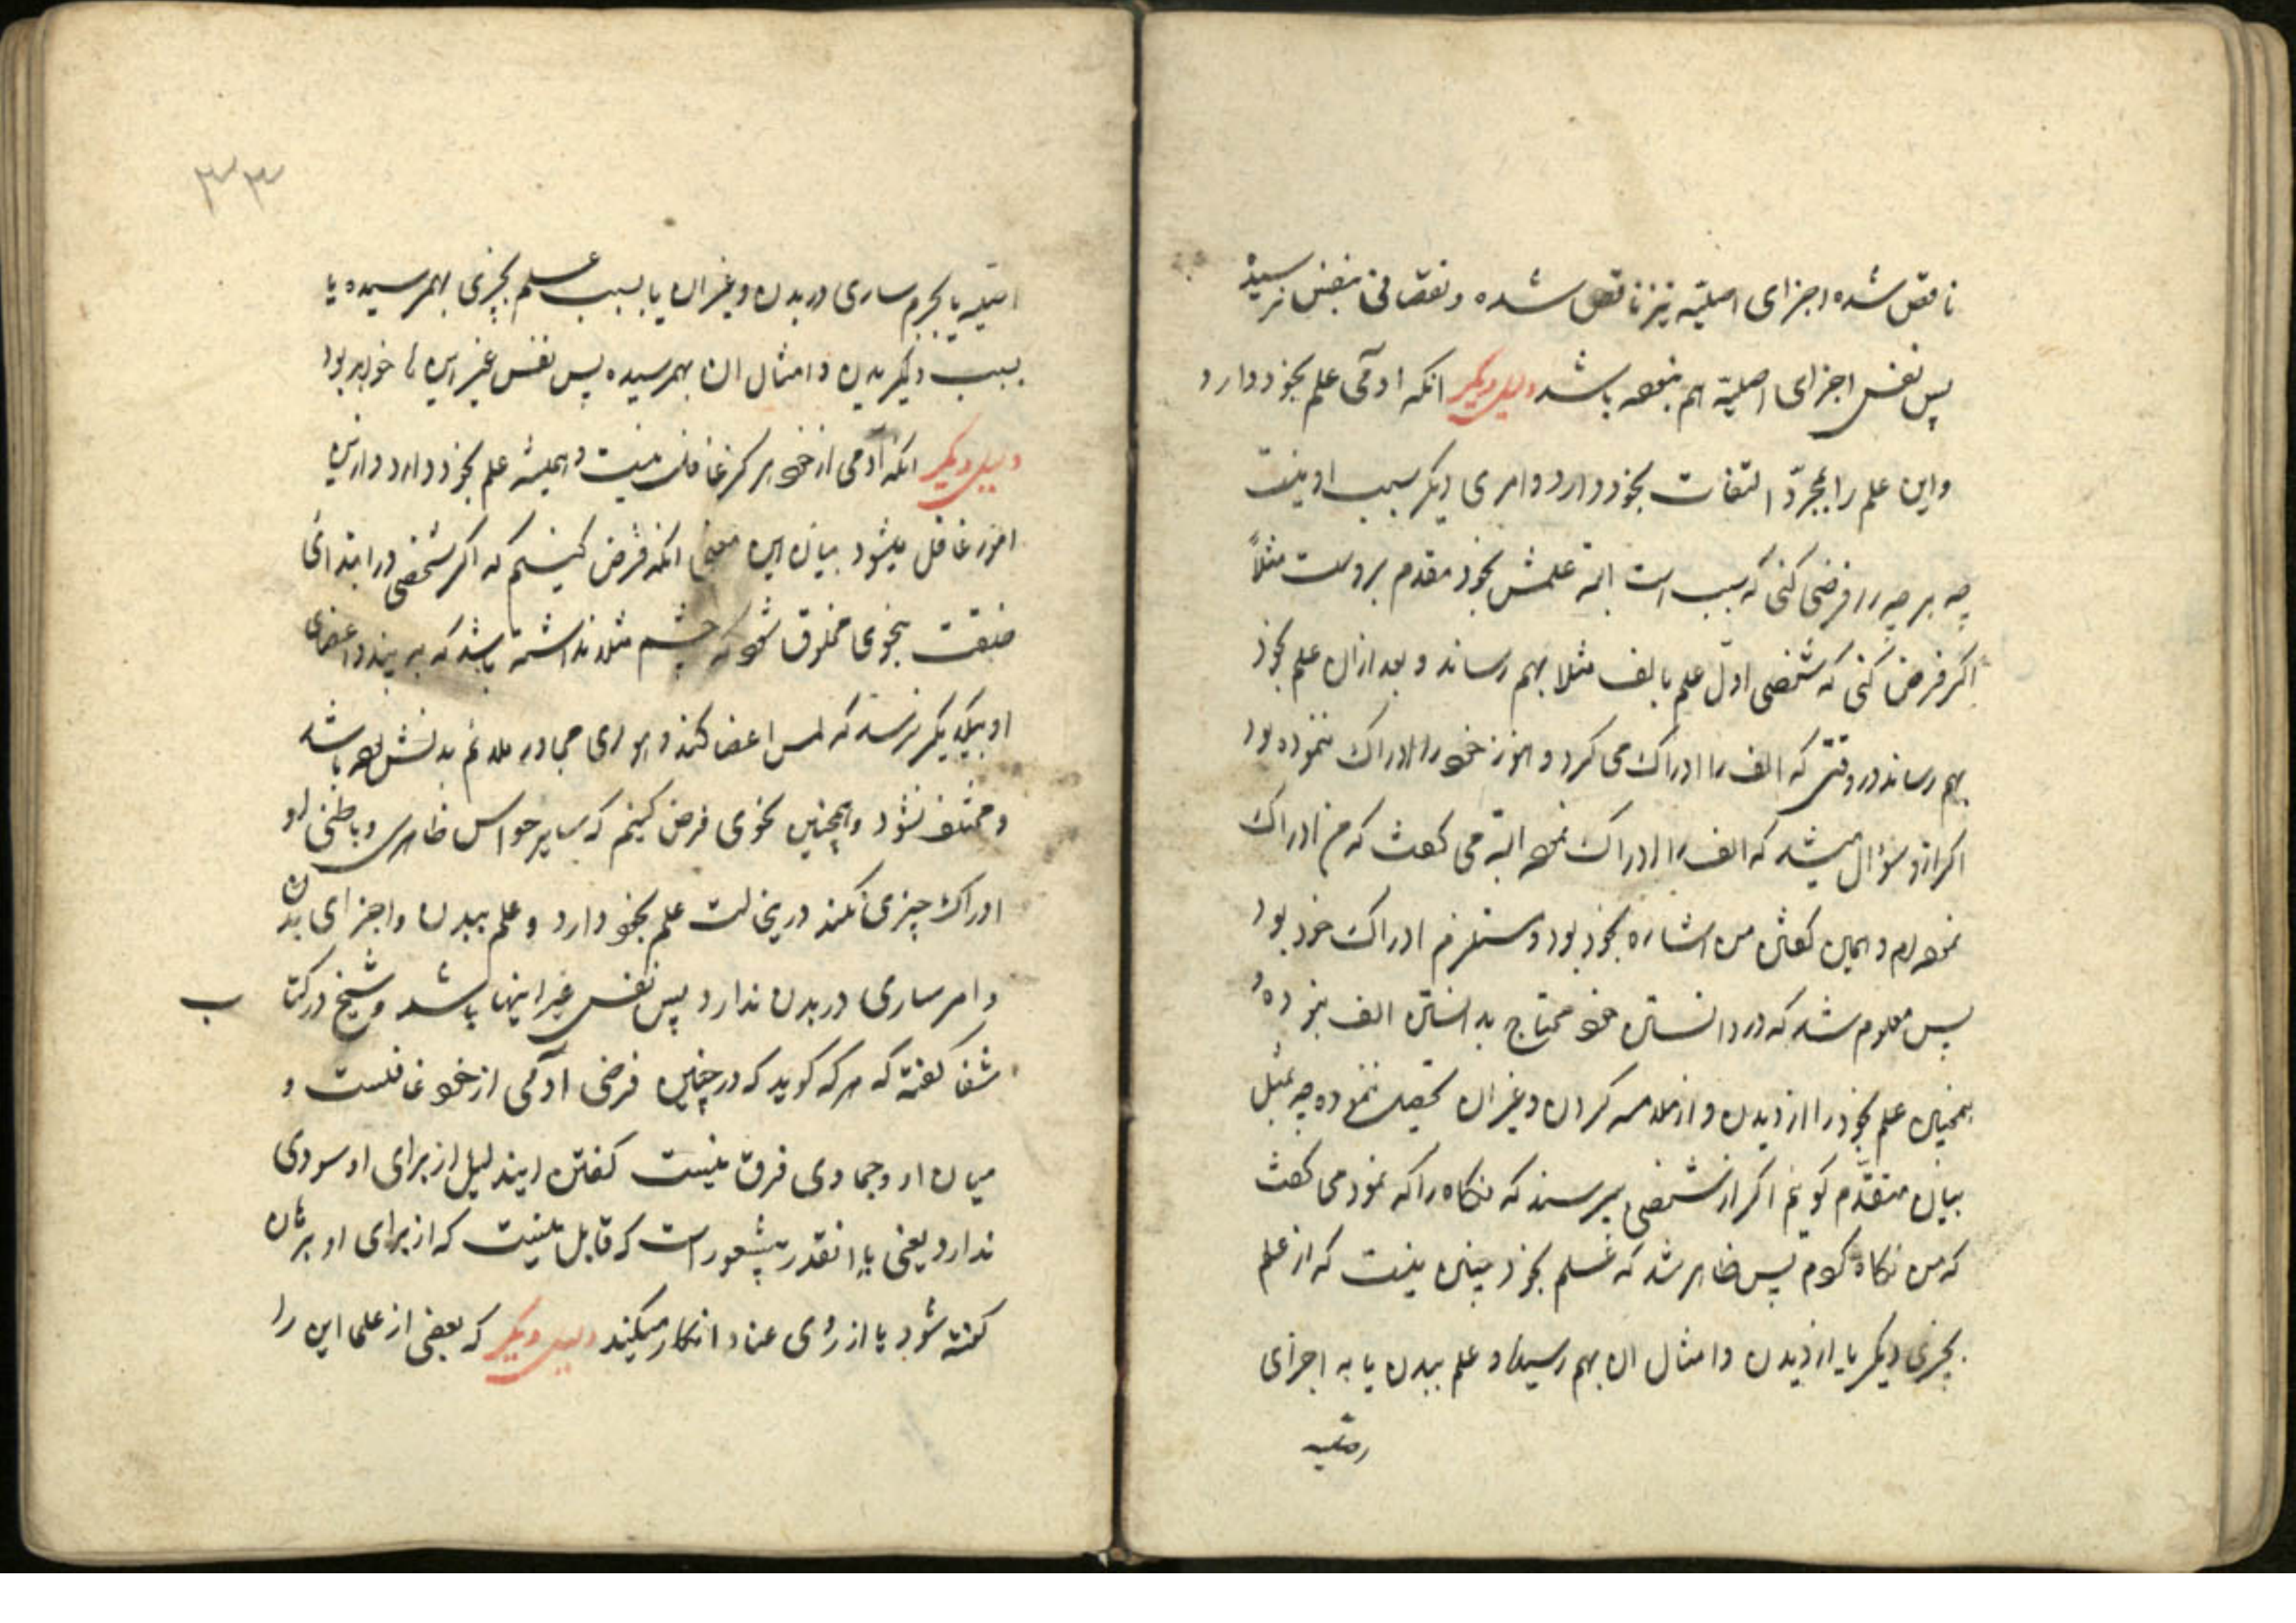 ناقص شده اجزای اصلیه نیز ناقص شده و نقصانی بنفس نرسیده
پس نفس اجزای اصلیة هم نبوده باشد دلیل دیکر انکه ادمی علم بخود دارد
واین علم را بمجرّد التفات بخود دارد و امری دیکر سبب او نیست
چه هر چه را فرض کنی که سبب است البته علمش بخود مقدم بروست مثلاً
اکر فرض کنی که شخصی اوّل علم بالف مثلا بهم رساند و بعد ازان علم بخود
بهم رساند در وقتی که الف را ادراک می کرد و هنوز خود را ادراک ننموده بود
اکر ازو سؤال میشد که الف را ادراک نموده البته می کفت که من ادراک
نموده‌ام و همین کفتن من اشاره بخود بود و مستلزم ادراک خود بود
پس معلوم شد که در دانستن خود محتاج بدانستن الف نبوده و
همچنین علم بخود را از دیدن و از ملامسه کردن و غیر ان تحصیل ننموده چه بمثل
بیان متقدّم کوئیم اکر از شخصی بپرسند که نکاه را که نمود می کفت
که من نکاه کردم پس ظاهر شد که علم بخود چنین نیست که از علم
بچیزی دیکر یا از دیدن و امثال ان بهم رسیده و علم ببدن یا به اجزای
اصلیه
۳۳
اصلیه یا بجرم ساری در بدن و غیر ان یا بسبب علم بچیزی بهمرسیده یا
بسبب دیکر بدن و امثال ان بهمرسیده پس نفس غیر این ها خواهد بود
دلیل دیکر انکه آدمی از خود هرکز غافل نیست و همیشه علم بخود دارد و ازین
امور غافل میشود بیان این معنی انکه فرض کنیم که اکر شخصی در ابتدای
خلقت بنحوی مخلوق شود که چشم مثلا نداشته باشد که به بیند و اعضای
او بیکدیکر نرسد که لمس اعضا کند و هوای مجاور ملایم بدنش بوده باشد
و مختلف نشود و همچنین بنحوی فرض کنیم که سایر حواس ظاهری و باطنی او
ادراک چیزی نکند درینحالت علم بخود دارد و علم ببدن و اجزای بدن
و امر ساری در بدن ندارد پس نفس غیر اینها باشد و شیخ در کتاب
شفا کفته که هر که کوید که در چنین فرضی آدمی از خود غافلست و
میان او و جمادی فرق نیست کفتن ایندلیل از برای او سودی
ندارد یعنی یا انقدر بیشعور است که قابل نیست که از برای او برهان
کفته شود یا از روی عناد انکار میکند دلیل دیکر که بعضی از علما این را